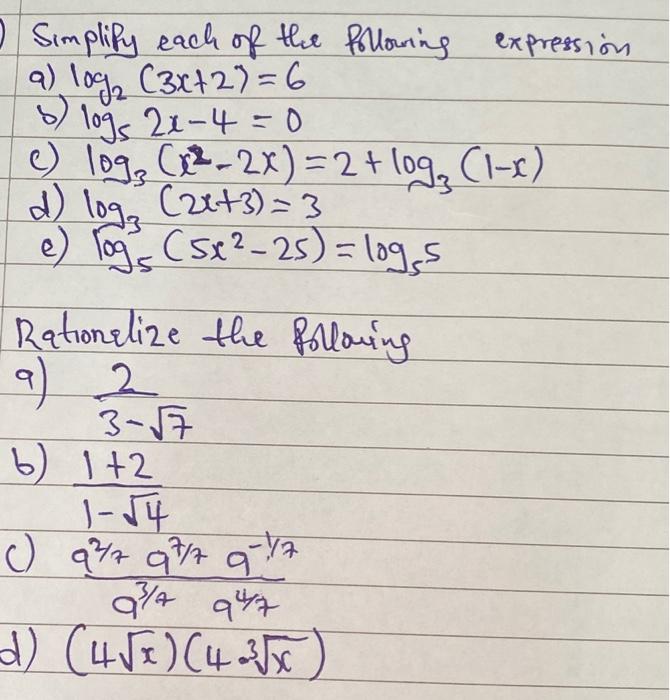 ) Simplify each of the following expression
a) log₂ (3x+2) = 6
b) log₅ 2x-4 = 0
c) log₃ (x²-2x) = 2+log₃ (1-x)
d) log₃ (2x+3) = 3
e) log₅ (5x²-25) = log₅5
Rationalize the following
a) 2
3-√7
b) 1+2
1-√4
c) a^2/7 a^7/7 a^-1/7
a^3/7 a^4/7
d) (4√x)(4 ³√x)